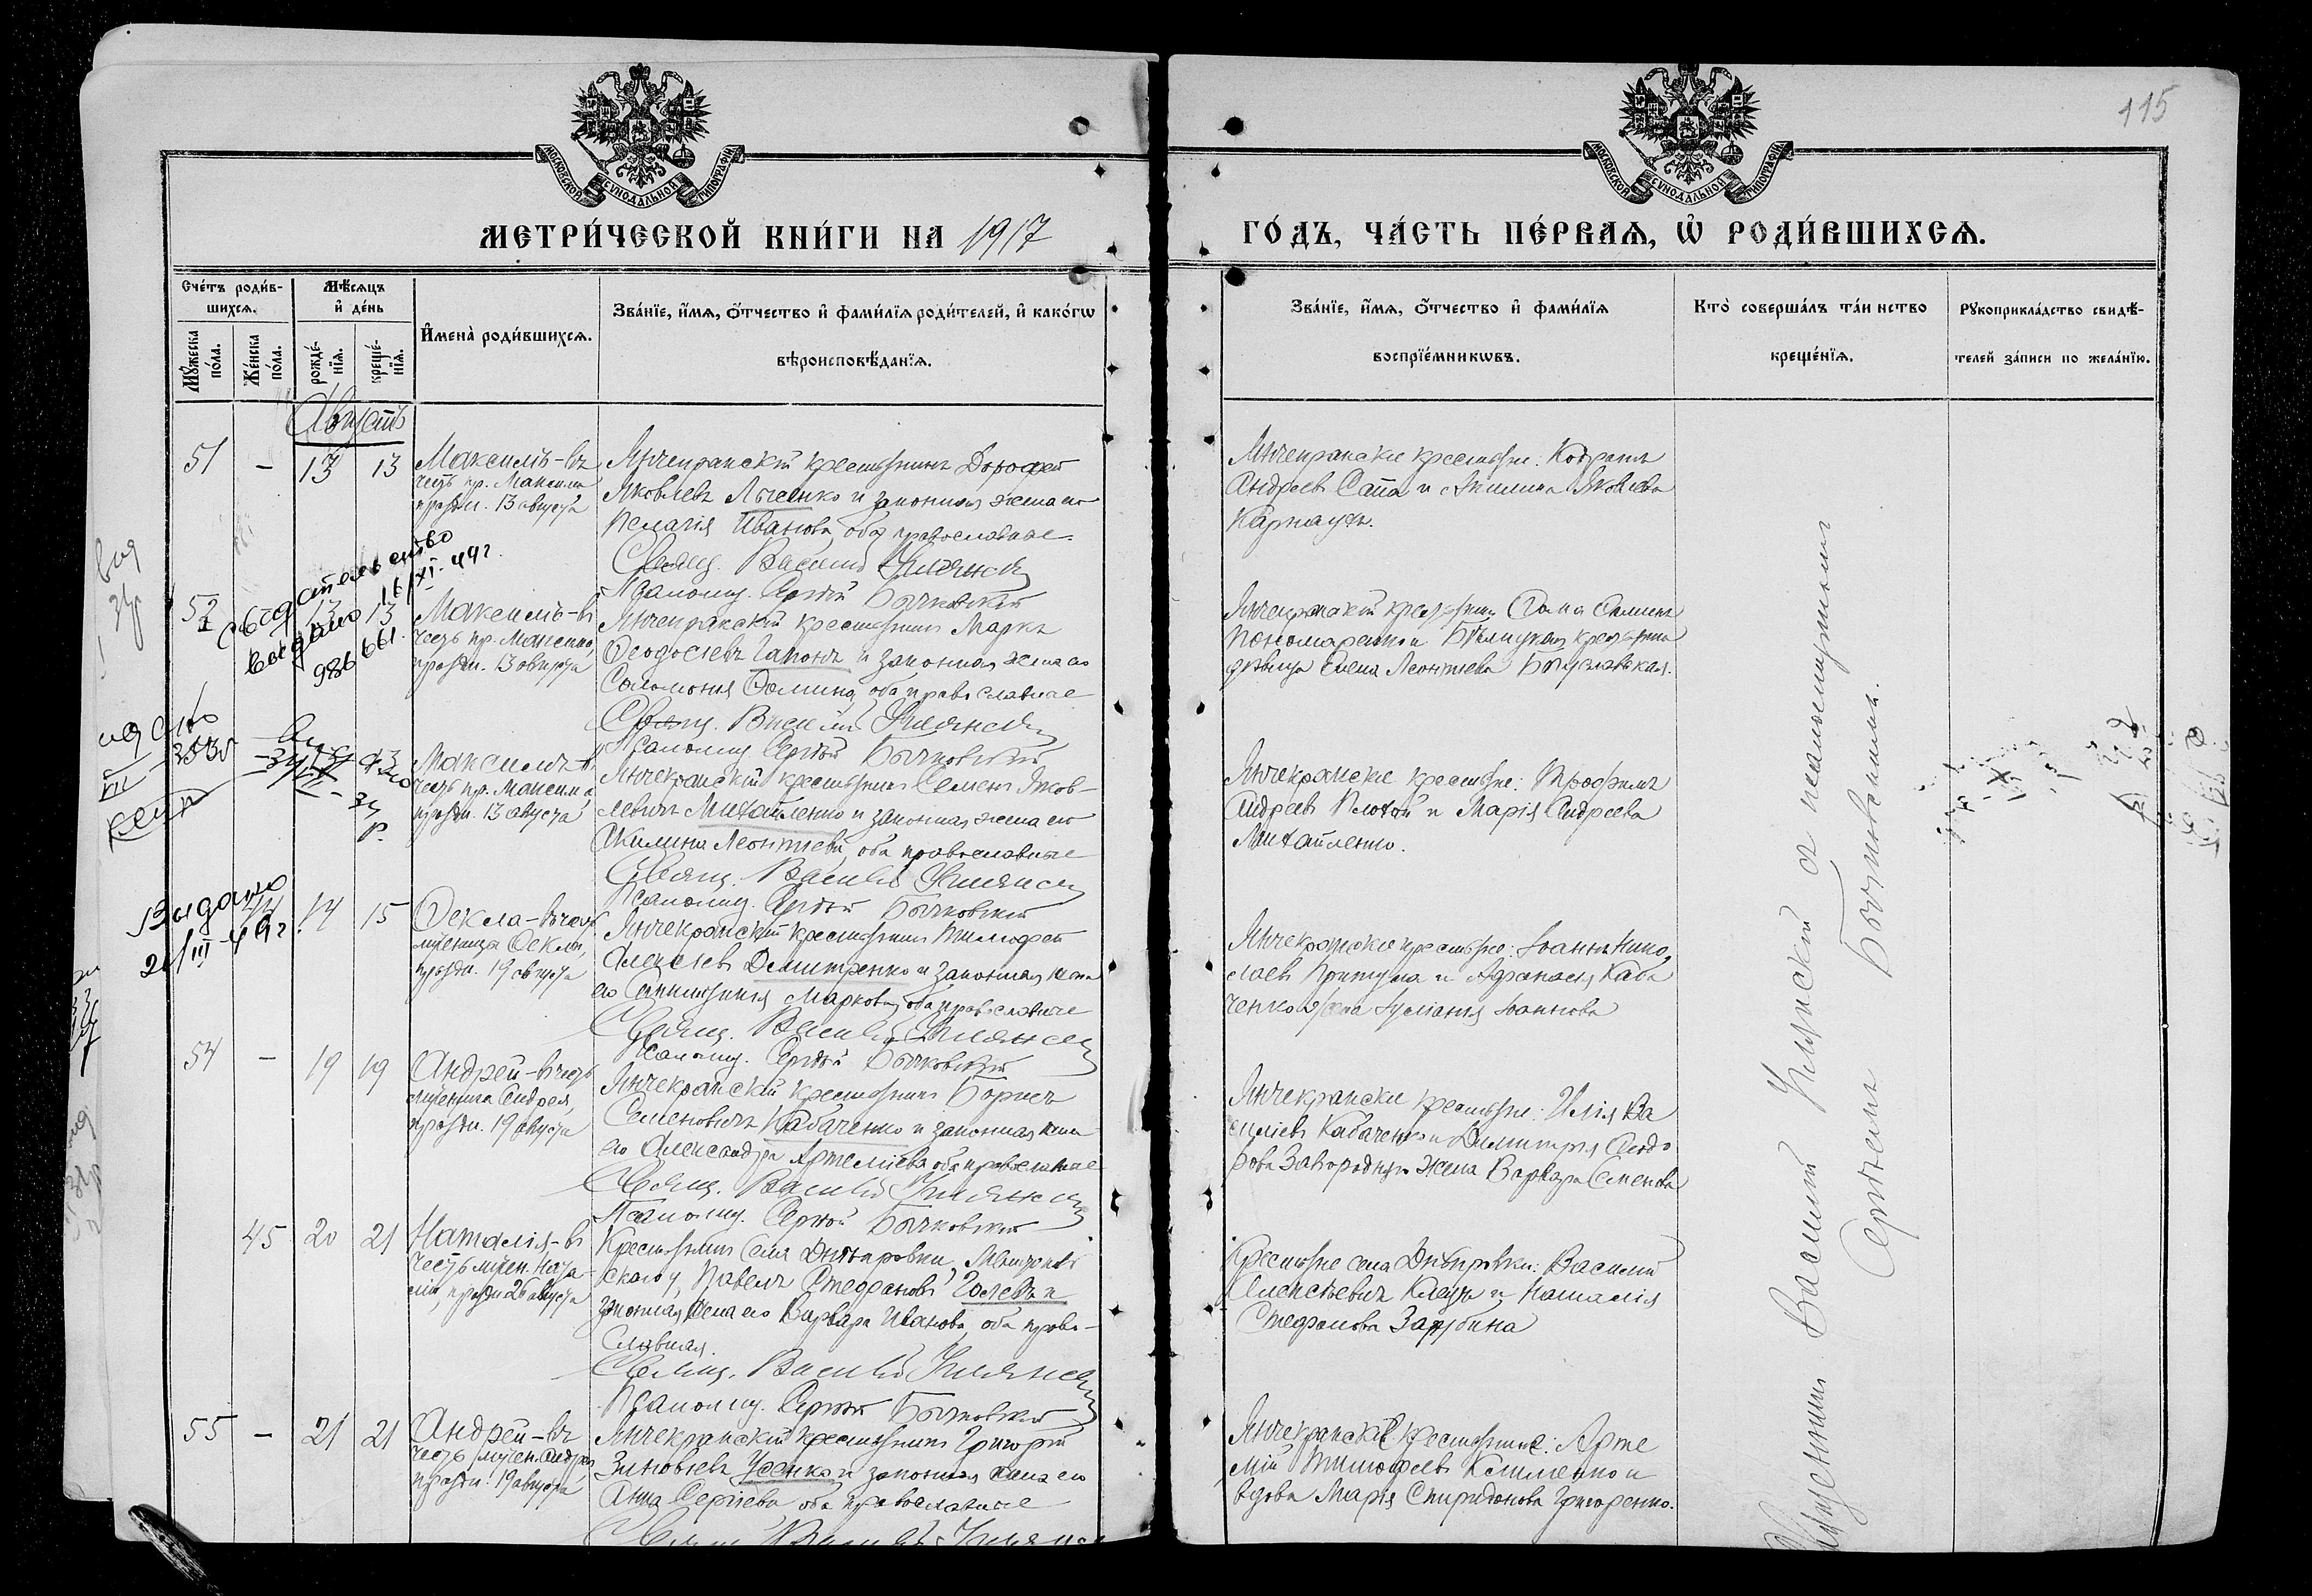 115
МОСКОВСКОЙ СѴНОДАЛЬНОЙ ТИПОГРАФІИ
МОСКОВСКОЙ СѴНОДАЛЬНОЙ ТИПОГРАФІИ
МЕТРИ́ЧЕСКОЙ КНИ́ГИ НА 1917
ГО́ДЪ, ЧА́СТЬ ПЕ́РВАѦ, Ѡ҆ РОДИ́ВШИХСѦ.
Сче́тъ роди́в-
шихсѧ.
Мꙋ́жеска
по́ла.
Же́нска
по́ла.
Мѣ́сѧцъ
и҆ де́нь
рожде́-
нїѧ.
креще́-
нїѧ.
И҆мена̀ роди́вшихсѧ.
Зва́нїе, и҆́мѧ, ѻ҆́тчество и҆ фами́лїѧ роди́телей, и҆ како́гѡ
вѣроисповѣ́данїѧ.
Зва́нїе, и҆́мѧ, ѻ҆́тчество и҆ фами́лїѧ
воспрїе́мникѡвъ.
Кто̀ соверша́лъ та́инство
креще́нїѧ.
Рꙋкоприкла́дство свидѣ́-
телей за́писи по жела́нїю.
Августъ
51 - 13 13
Максимъ-въ
честь пр. Максима
праздн. 13 августа
Янчекранскій крестьянинъ Дорофей
Яковлевъ Лысенко и законная жена его
Пелагія Иванова, оба православные.
Свящ. Василій
Псаломщ. Сергѣй Бычковскій
Янчекранскіе крестьяне: Кодратъ
Андреевъ Сапа и Акилина Яковлева
Карнаухъ.
52 13 13
свідательство
выдано 16/XI-49г.
986661.
Максимъ-въ
честь пр. Максима,
праздн. 13 августа
Янчекранскій крестьянинъ Маркъ
Ѳеодосіевъ Гапонъ и законная жена его
Соломонія Ѳомина, оба православные
Свящ. Василій
Псаломщ. Сергѣй Бычковскій
Янчекранскій крестьянинъ Ѳома Ѳоминъ
Пономаренко и Бѣлицкая крестьянка
дѣвица Елена Леонтіева Богуславская.
53 - 13 13
Максимъ-въ
честь пр. Максима,
праздн. 13 августа
Янчекранскій крестьянинъ Семенъ Яков-
левичъ Михайленко и законная жена его
Акилина Леонтіева, оба православные
Свящ. Василій
Псаломщ. Сергѣй Бычковскій
Янчекранскіе крестьяне: Трофимъ
Андреевъ Плохой и Марія Андреева
Михайленко.
Выдано
21/III-49г.
44 14 15
Ѳекла-въ честь
мученицы Ѳеклы,
праздн. 19 августа
Янчекранскій крестьянинъ Тимофей
Алексіевъ Демитренко и законная жена
его Маркова, оба православные
Свящ. Василій
Псаломщ. Сергѣй Бычковскій
Янчекранскіе крестьяне: Іоаннъ Нико-
лаевъ Притула и Афанасія Каба
ченко жена Іуліанія Іоаннова
54 - 19 19
Андрей-въ честь
мученика Андрея,
праздн. 19 августа
Янчекранскій крестьянинъ Борисъ
Семеновичъ Кабаченко и законная жена
его Александра Артеміева оба православные
Свящ. Василій
Псаломщ. Сергѣй Бычковскій
Янчекранскіе крестьяне: Илія Ва
силіевъ Кабаченко и Димитрія Ѳеодо
рова Загородняго жена Варвара Семенова
45 20 21
Наталія-въ
честь мучен. Ната-
ліи, праздн 26 августа
Крестьянинъ села Днѣпровки, Мелитополь
скаго у, Павелъ Стефановъ Голевъ и
законная жена его Варвара Иванова, оба право-
славные.
Свящ. Василій
Псаломщ. Сергѣй Бычковскій
Крестьяне села Днѣпровки: Василій
Алексѣевичъ и Наталія
Стефанова Зарубина
55 - 21 21
Андрей-въ
честь мучен. Андрея,
праздн. 19 августа
Янчекранскій крестьянинъ Григорій
Зиновіевъ Усенко и законная жена его
Анна Сергіева оба православные
Янчекранскіе крестьяне: Арте
мій Тимофеевъ Клименко и
вдова Марія Спиридонова Григоренко.
Священникъ Василій съ псаломщикомъ
Сергѣемъ Бычковскимъ.